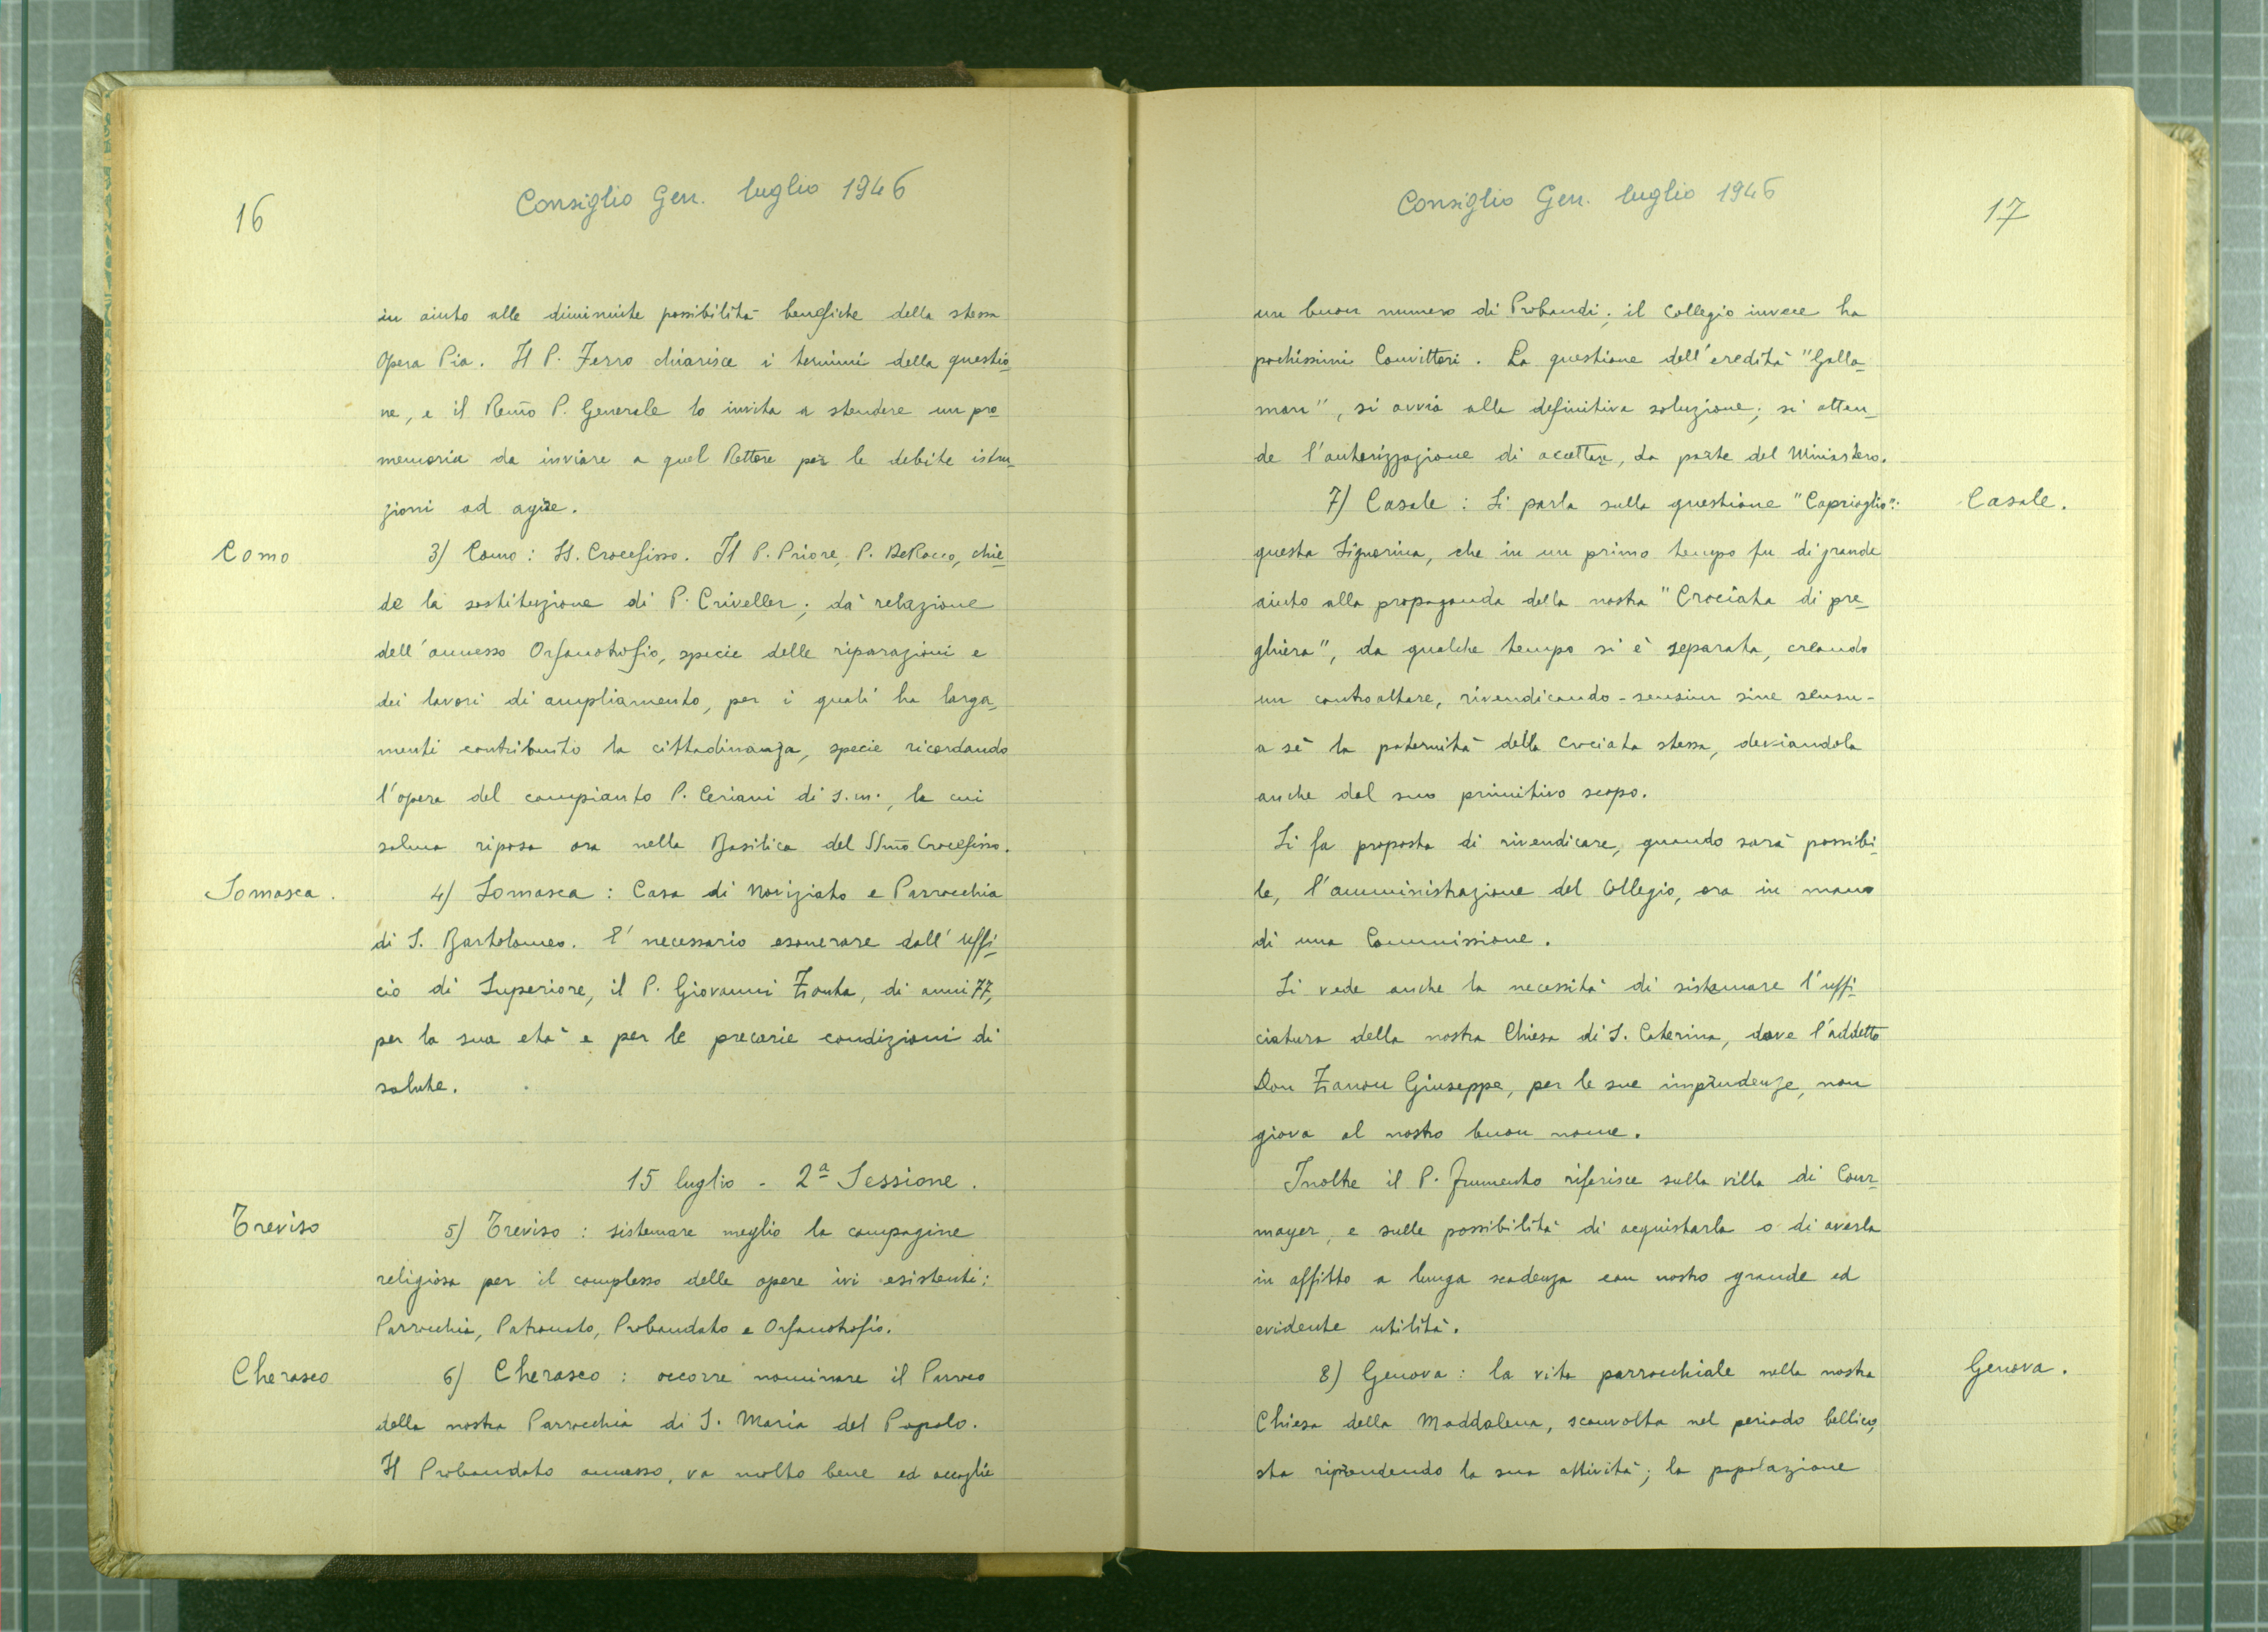 16
Consiglio Gen. luglio 1946
in aiuto alle diminuite possibilità benefiche della stessa
Opera Pia. Il P. Ferro chiarisce i termini della questio-
ne, e il Rev̄mo P. Generale lo invita a stendere un pro-
memoria da inviare a quel Rettore per le debite istru-
zioni ad agire.
Como
3) Como: SS. Crocefisso. Il P. Priore, P. De Rocco, chie-
de la sostituzione di P. Criveller; dà relazione
dell'annesso Orfanotrofio, specie delle riparazioni e
dei lavori di ampliamento, per i quali ha larga-
menti contribuito la cittadinanza, specie ricordando
l'opera del compianto P. Ceriani di s.m., la cui
salma riposa ora nella Basilica del SSm̄o Crocefisso.
Somasca.
4) Somasca: Casa di Noviziato e Parrocchia
di S. Bartolomeo. E' necessario esonerare dall'uffi-
cio di Superiore, il P. Giovanni Zonta, di anni 77,
per la sua età e per le precarie condizioni di
salute.
15 luglio - 2ª Sessione.
Treviso
5) Treviso: sistemare meglio la compagine
religiosa per il complesso delle opere ivi esistenti:
Parrocchia, Patronato, Probandato e Orfanotrofio.
Cherasco
6) Cherasco: occorre nominare il Parroco
della nostra Parrocchia di S. Maria del Popolo.
Il Probandato annesso, va molto bene ed accoglie
Consiglio Gen. luglio 1946
17
un buon numero di Probandi; il Collegio invece ha
pochissimi Convittori. La questione dell'eredità "Galla-
man", si avvia alla definitiva soluzione; si atten-
de l'autorizzazione di accettare, da parte del Ministero.
7) Casale: Si parla sulla questione "Caprioglio":
Casale.
questa Signorina, che in un primo tempo fu di grande
aiuto alla propaganda della nostra "Crociata di pre-
ghiera", da qualche tempo si è separata, creando
un controaltare, rivendicando - sensim sine sensu -
a sè la paternità della Crociata stessa, deviandola
anche dal suo primitivo scopo.
Si fa proposta di rivendicare, quando sarà possibi-
le, l'amministrazione del Collegio, ora in mano
di una Commissione.
Si vede anche la necessità di sistemare l'uffi-
ciatura della nostra Chiesa di S. Caterina, dove l'addetto
Don Zanon Giuseppe, per le sue imprudenze, non
giova al nostro buon nome.
Inoltre il P. Frumento riferisce sulla villa di Cour-
mayer, e sulle possibilità di acquistarla o di averla
in affitto a lunga scadenza con nostro grande ed
evidente utilità.
8) Genova: la vita parrocchiale nella nostra
Genova.
Chiesa della Maddalena, sconvolta nel periodo bellico,
sta riprendendo la sua attività; la popolazione